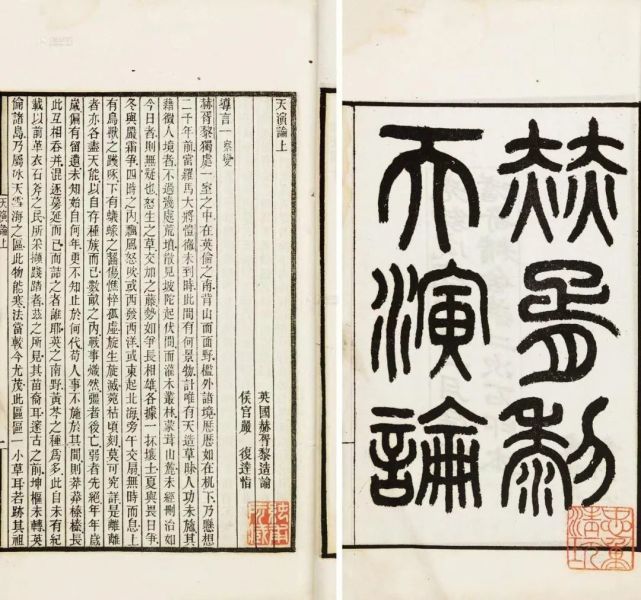 赫胥黎
天演論
天演論上
英國赫胥黎造論
侯官嚴 復達恉
導言一 察變
赫胥黎獨處一室之中在英倫之南背山而面野檻外諸境歷歷如在机下乃懸想
二千年前當羅馬大將愷徹未到時此間有何景物計唯有天造草昧人功未施其
藉徵人境者不過幾處荒墳散見坡陀起伏間而灌木叢林蒙茸山麓未經刪治如
今日者則無疑也怒生之草交加之藤勢如爭長相雄各據一抔壤土夏與畏日爭
冬與嚴霜爭四時之內飄風怒吹或西發西洋或東起北海旁午交扇無時而息上
有鳥獸之踐啄下有蟻蝝之齧傷憔悴孤虛旋生旋滅菀枯頃刻莫可究詳是離離
者亦各盡天能以自存種族而已數畝之內戰事熾然彊者後亡弱者先絕年年歲
歲偏有留遺未知始自何年更不知止於何代苟人事不施於其間則莽莽榛榛長
此互相吞并混逐蔓延而已而詰之者誰耶英之南野黃芩之種為多此自未有紀
載以前革衣石斧之民所采擷踐踏者茲之所見其苗裔耳邃古之前坤樞未轉英
倫諸島乃屬冰天雪海之區此物能寒法當較今尤茂此區區一小草耳若跡其祖
天演論上